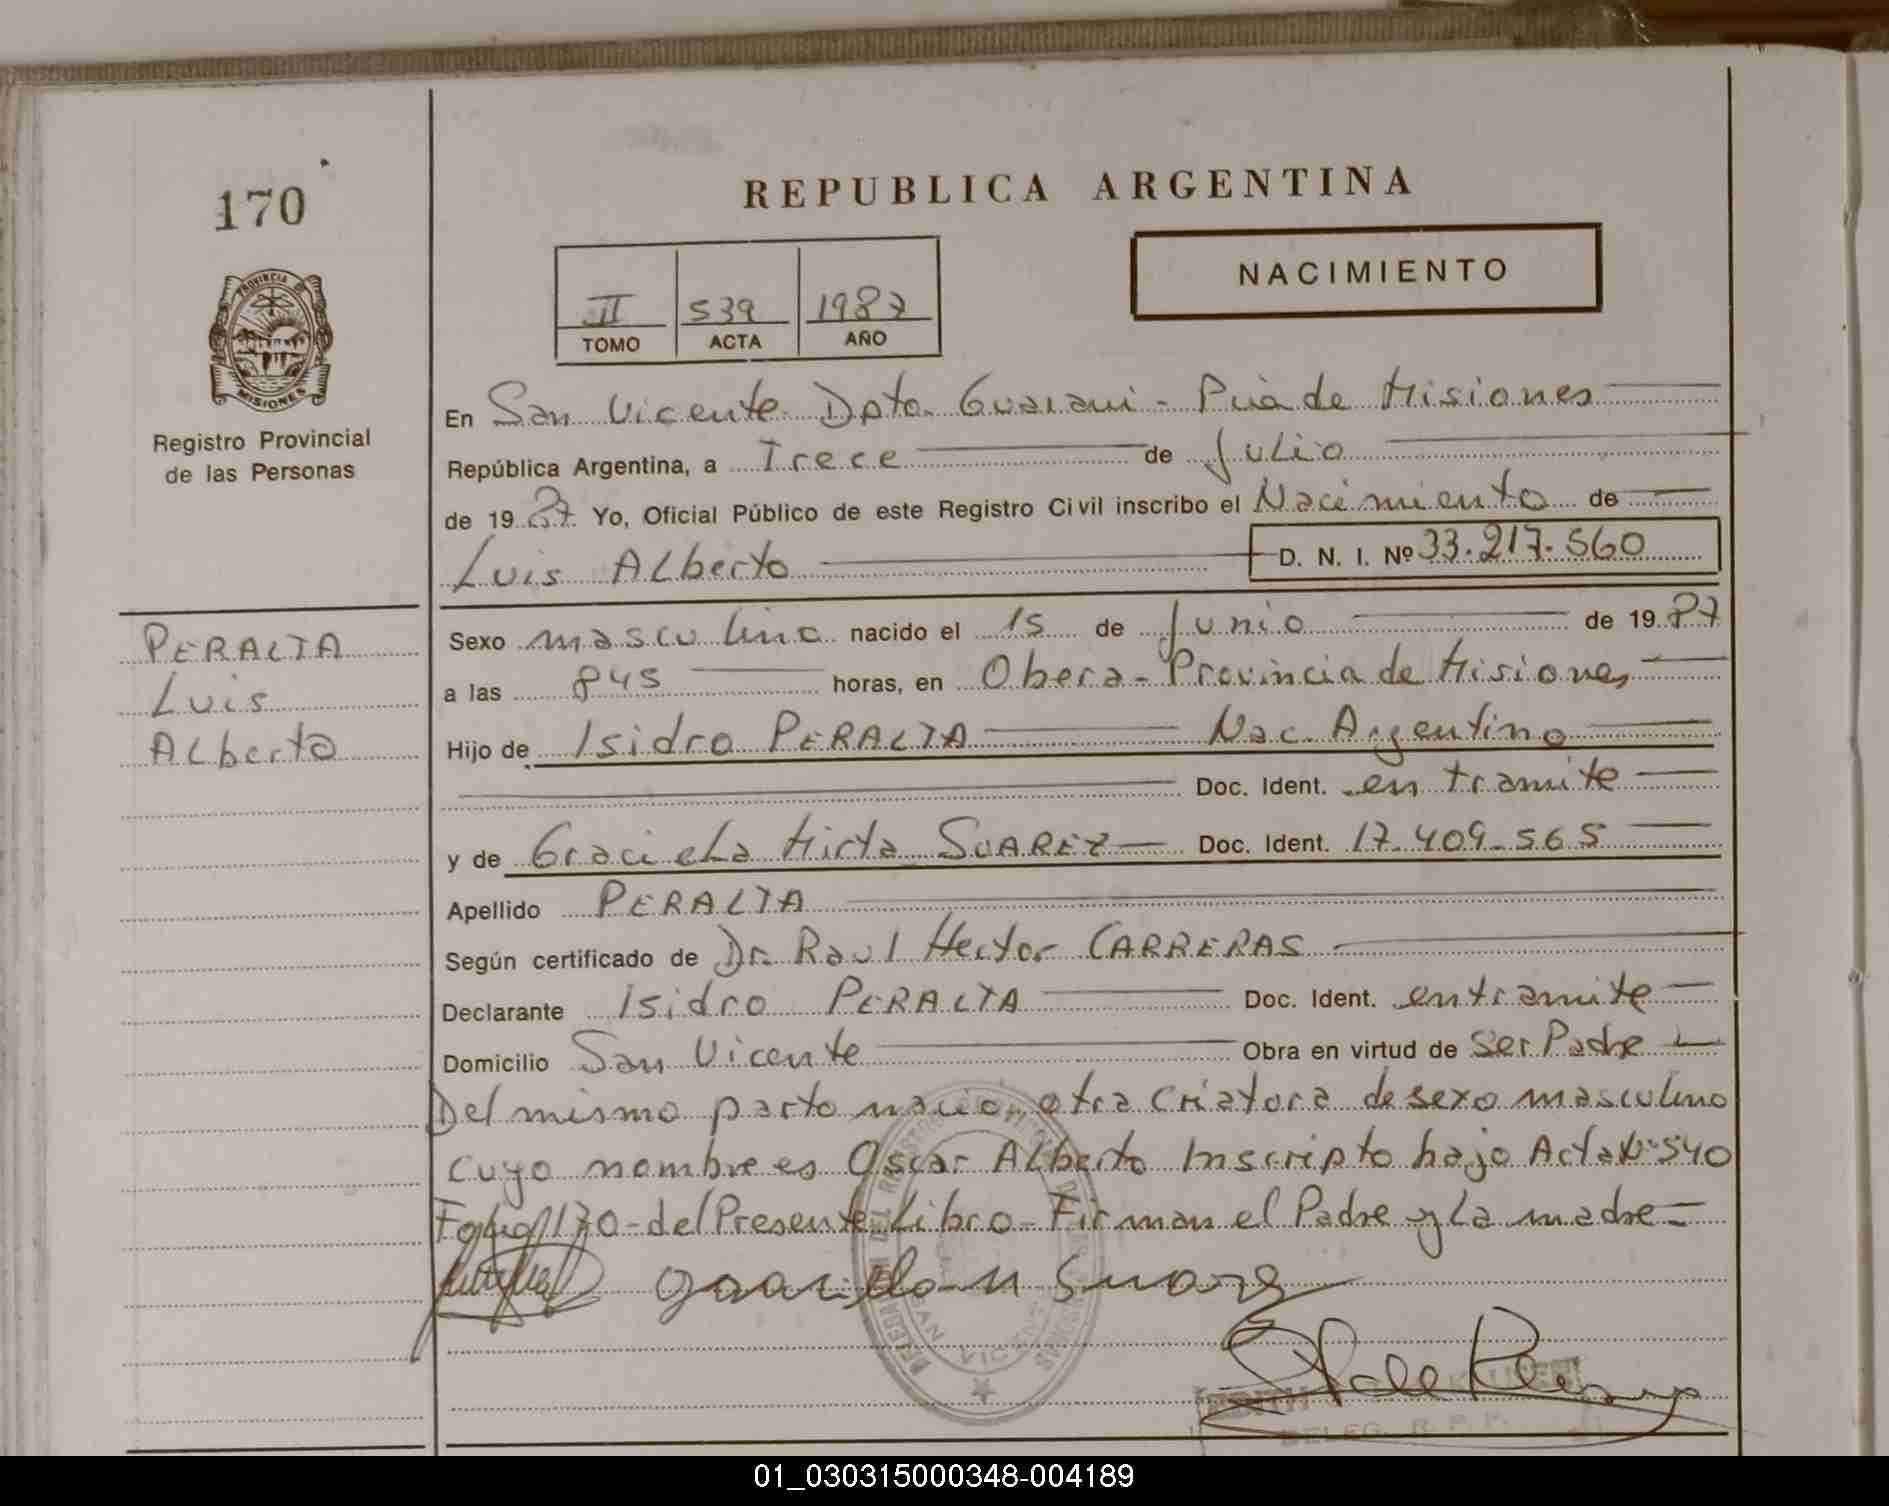 170
REPUBLICA ARGENTINA
PROVINCIA
MISIONES
Registro Provincial
de las Personas
NACIMIENTO
II 539 1987
TOMO ACTA AÑO
En San Vicente Dpto. Guarani - Pcia de Misiones
República Argentina, a Trece de Julio
de 1987 Yo, Oficial Público de este Registro Civil inscribo el Nacimiento de
Luis Alberto D. N. I. Nº 33.217.560
PERALTA
Luis
Alberto
Sexo masculino nacido el 15 de Junio de 1987
a las 845 horas, en Obera - Provincia de Misiones
Hijo de Isidro PERALTA Nac. Argentino
Doc. Ident. en tramite
y de Graciela Mirta SUAREZ Doc. Ident. 17.409.565
Apellido PERALTA
Según certificado de Dr. Raul Hector CARRERAS
Declarante Isidro PERALTA Doc. Ident. en tramite
Domicilio San Vicente Obra en virtud de Ser Padre
Del mismo parto nacio otra criatura de sexo masculino
cuyo nombre es Oscar Alberto Inscripto bajo Acta Nº 540
Folio 170 - del Presente Libro - Firman el Padre y La madre =
Suarez
EDITH
DELEG. R. P. P.
01_030315000348-004189